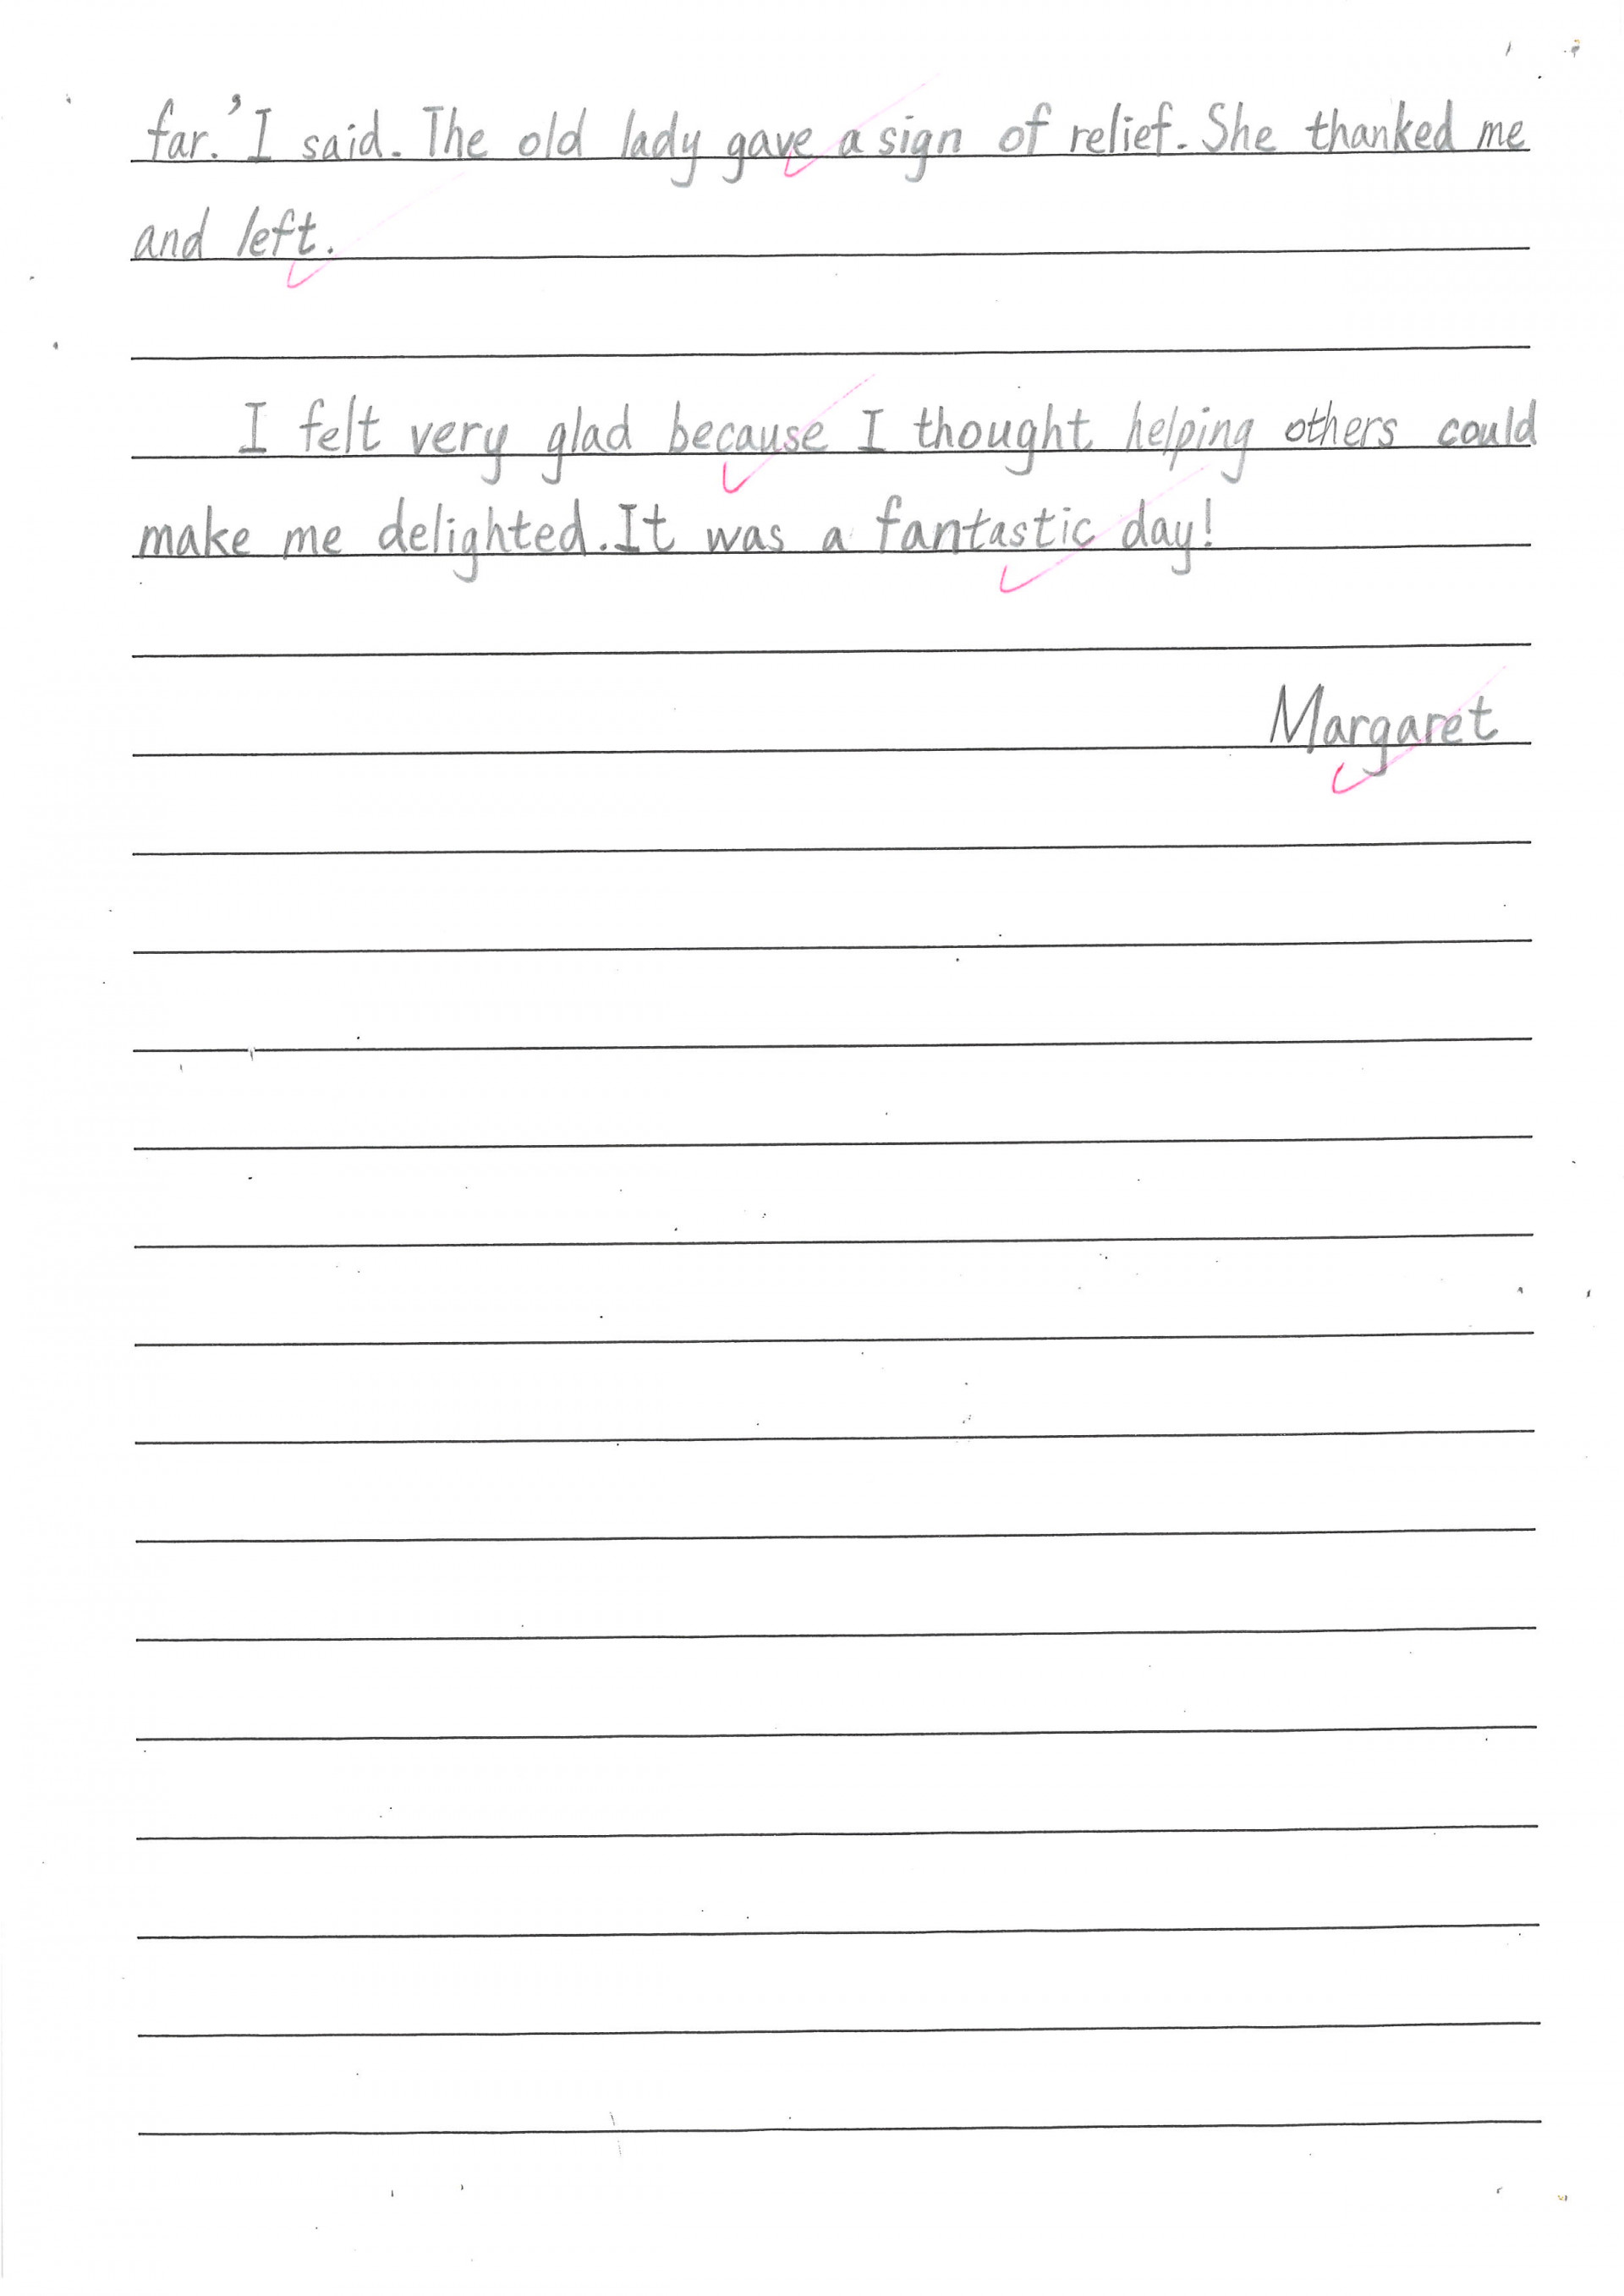 far.' I said. The old lady gave a sign of relief. She thanked me
and left.
I felt very glad because I thought helping others could
make me delighted. It was a fantastic day!
Margaret